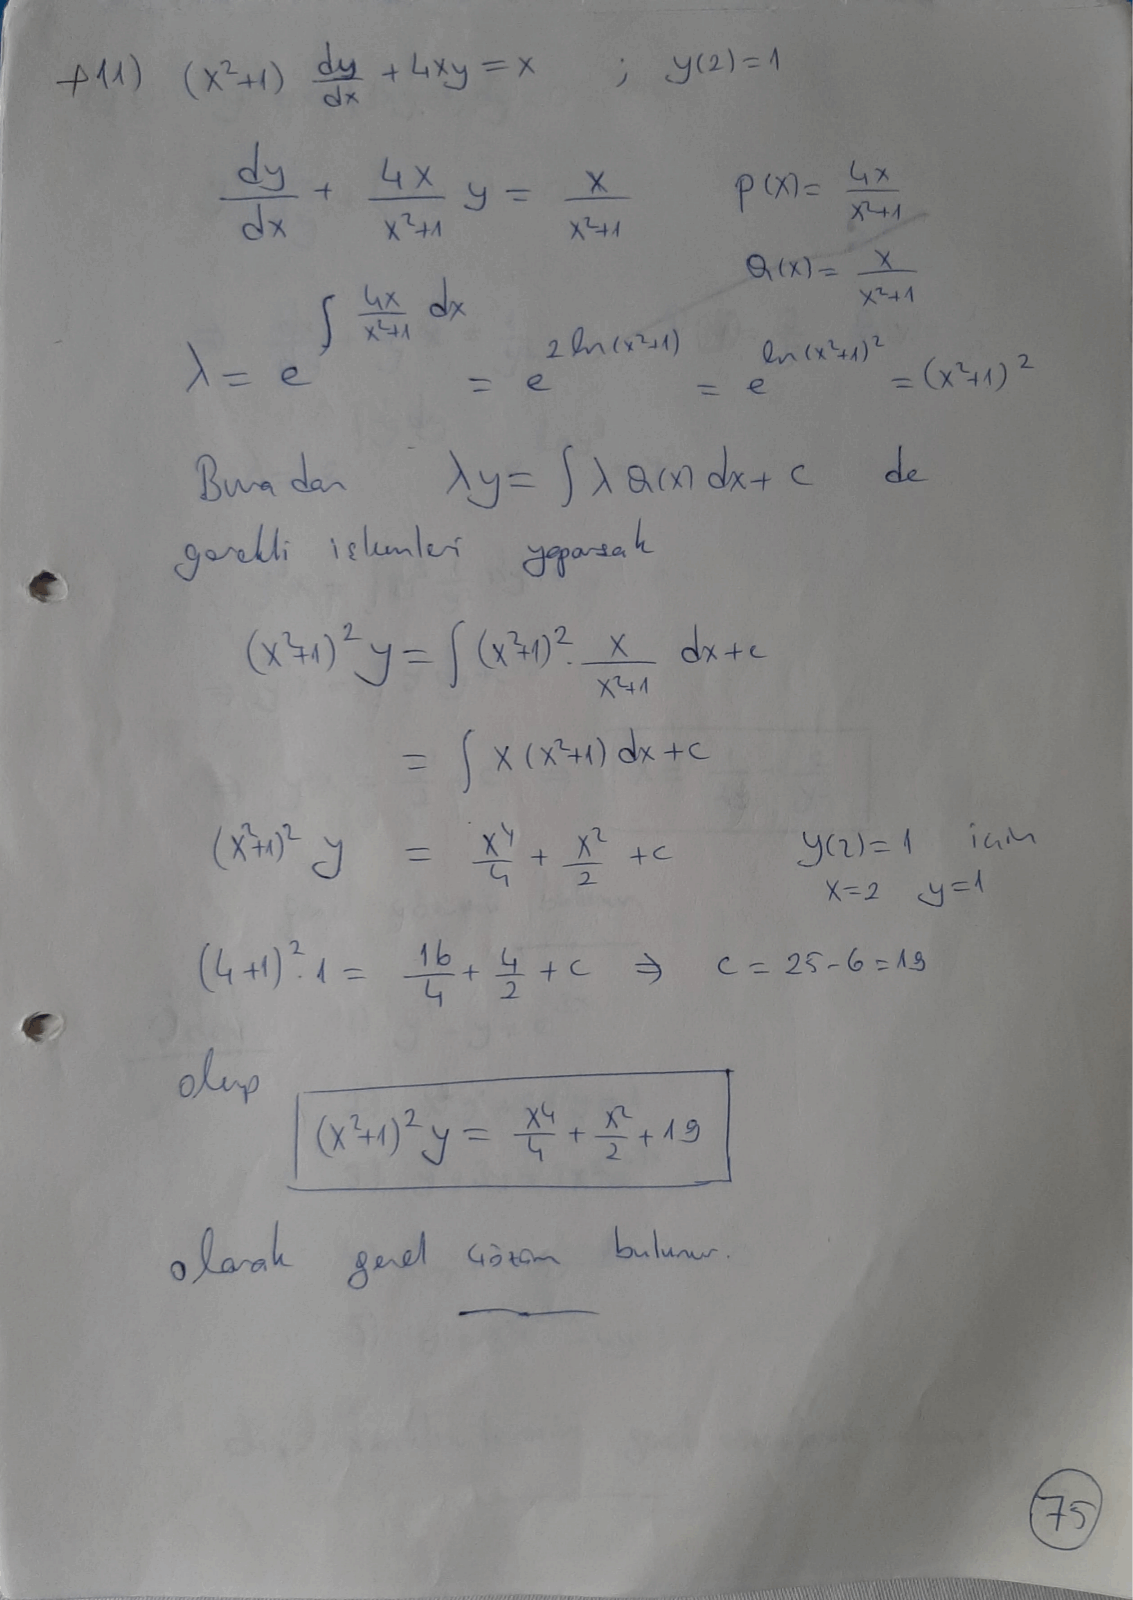 11) (x²+1) dy/dx + 4xy = x ; y(2)=1
dy/dx + 4x/(x²+1) y = x/(x²+1) p(x) = 4x/(x²+1)
Q(x) = x/(x²+1)
λ = e^(∫ 4x/(x²+1) dx) = e^(2ln(x²+1)) = e^(ln(x²+1)²) = (x²+1)²
Buradan λy = ∫ λ Q(x) dx + c de
gerekli işlemleri yaparsak
(x²+1)² y = ∫ (x²+1)² . x/(x²+1) dx + c
= ∫ x (x²+1) dx + c
(x²+1)² y = x⁴/4 + x²/2 + c y(2)=1 için
x=2 y=1
(4+1)² . 1 = 16/4 + 4/2 + c ⇒ c = 25-6 = 19
olup
(x²+1)² y = x⁴/4 + x²/2 + 19
olarak genel çözüm bulunur.
75